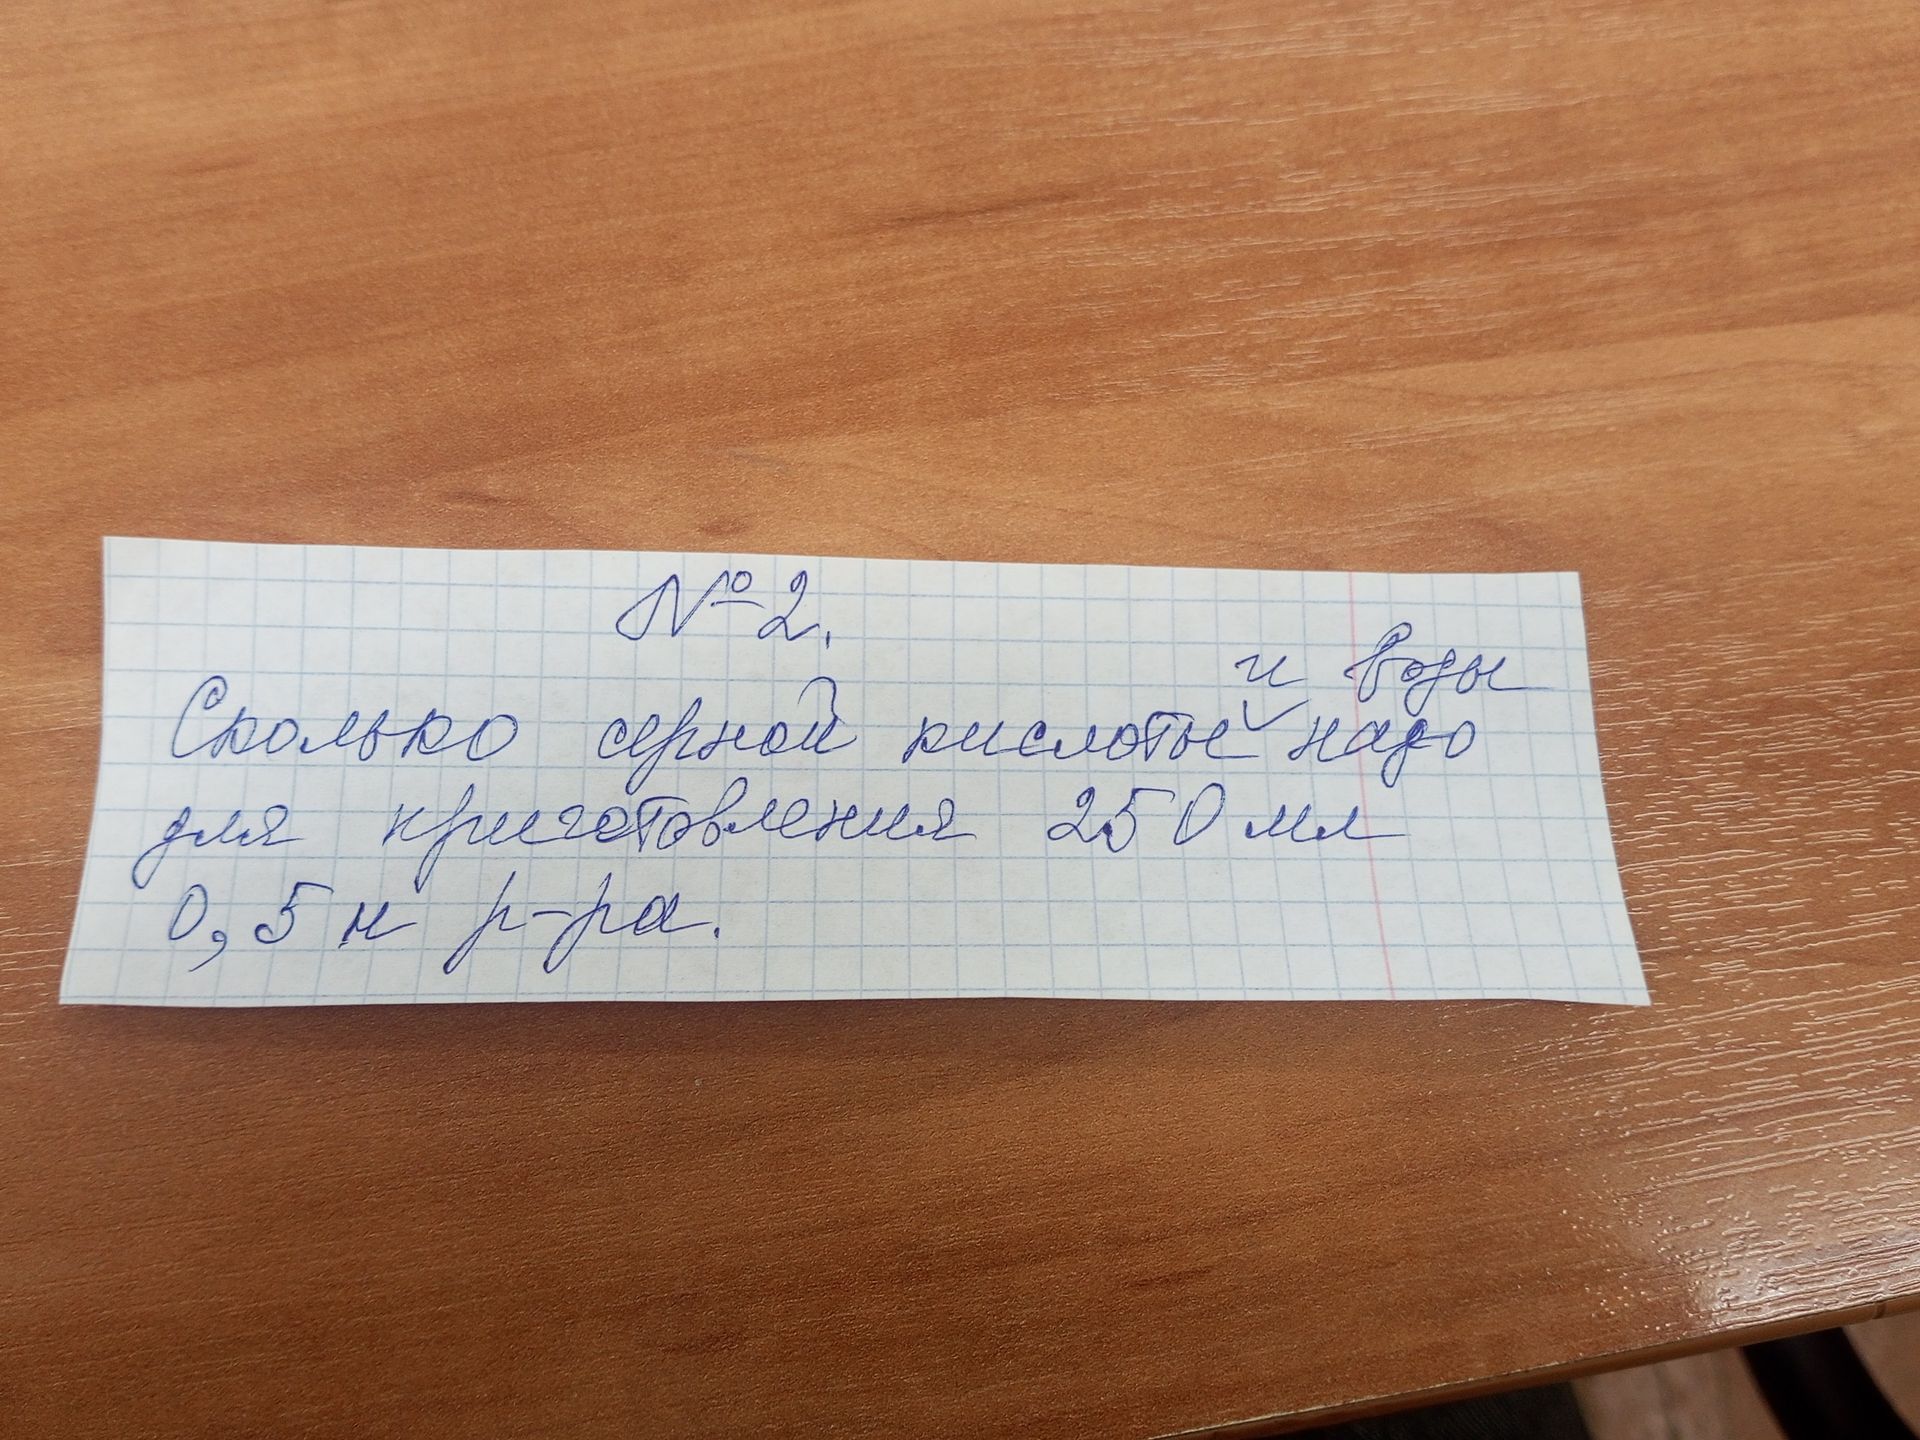 № 2.
и воды
Сколько серной кислоты надо
для приготовления 250 мл
0,5 н р-ра.